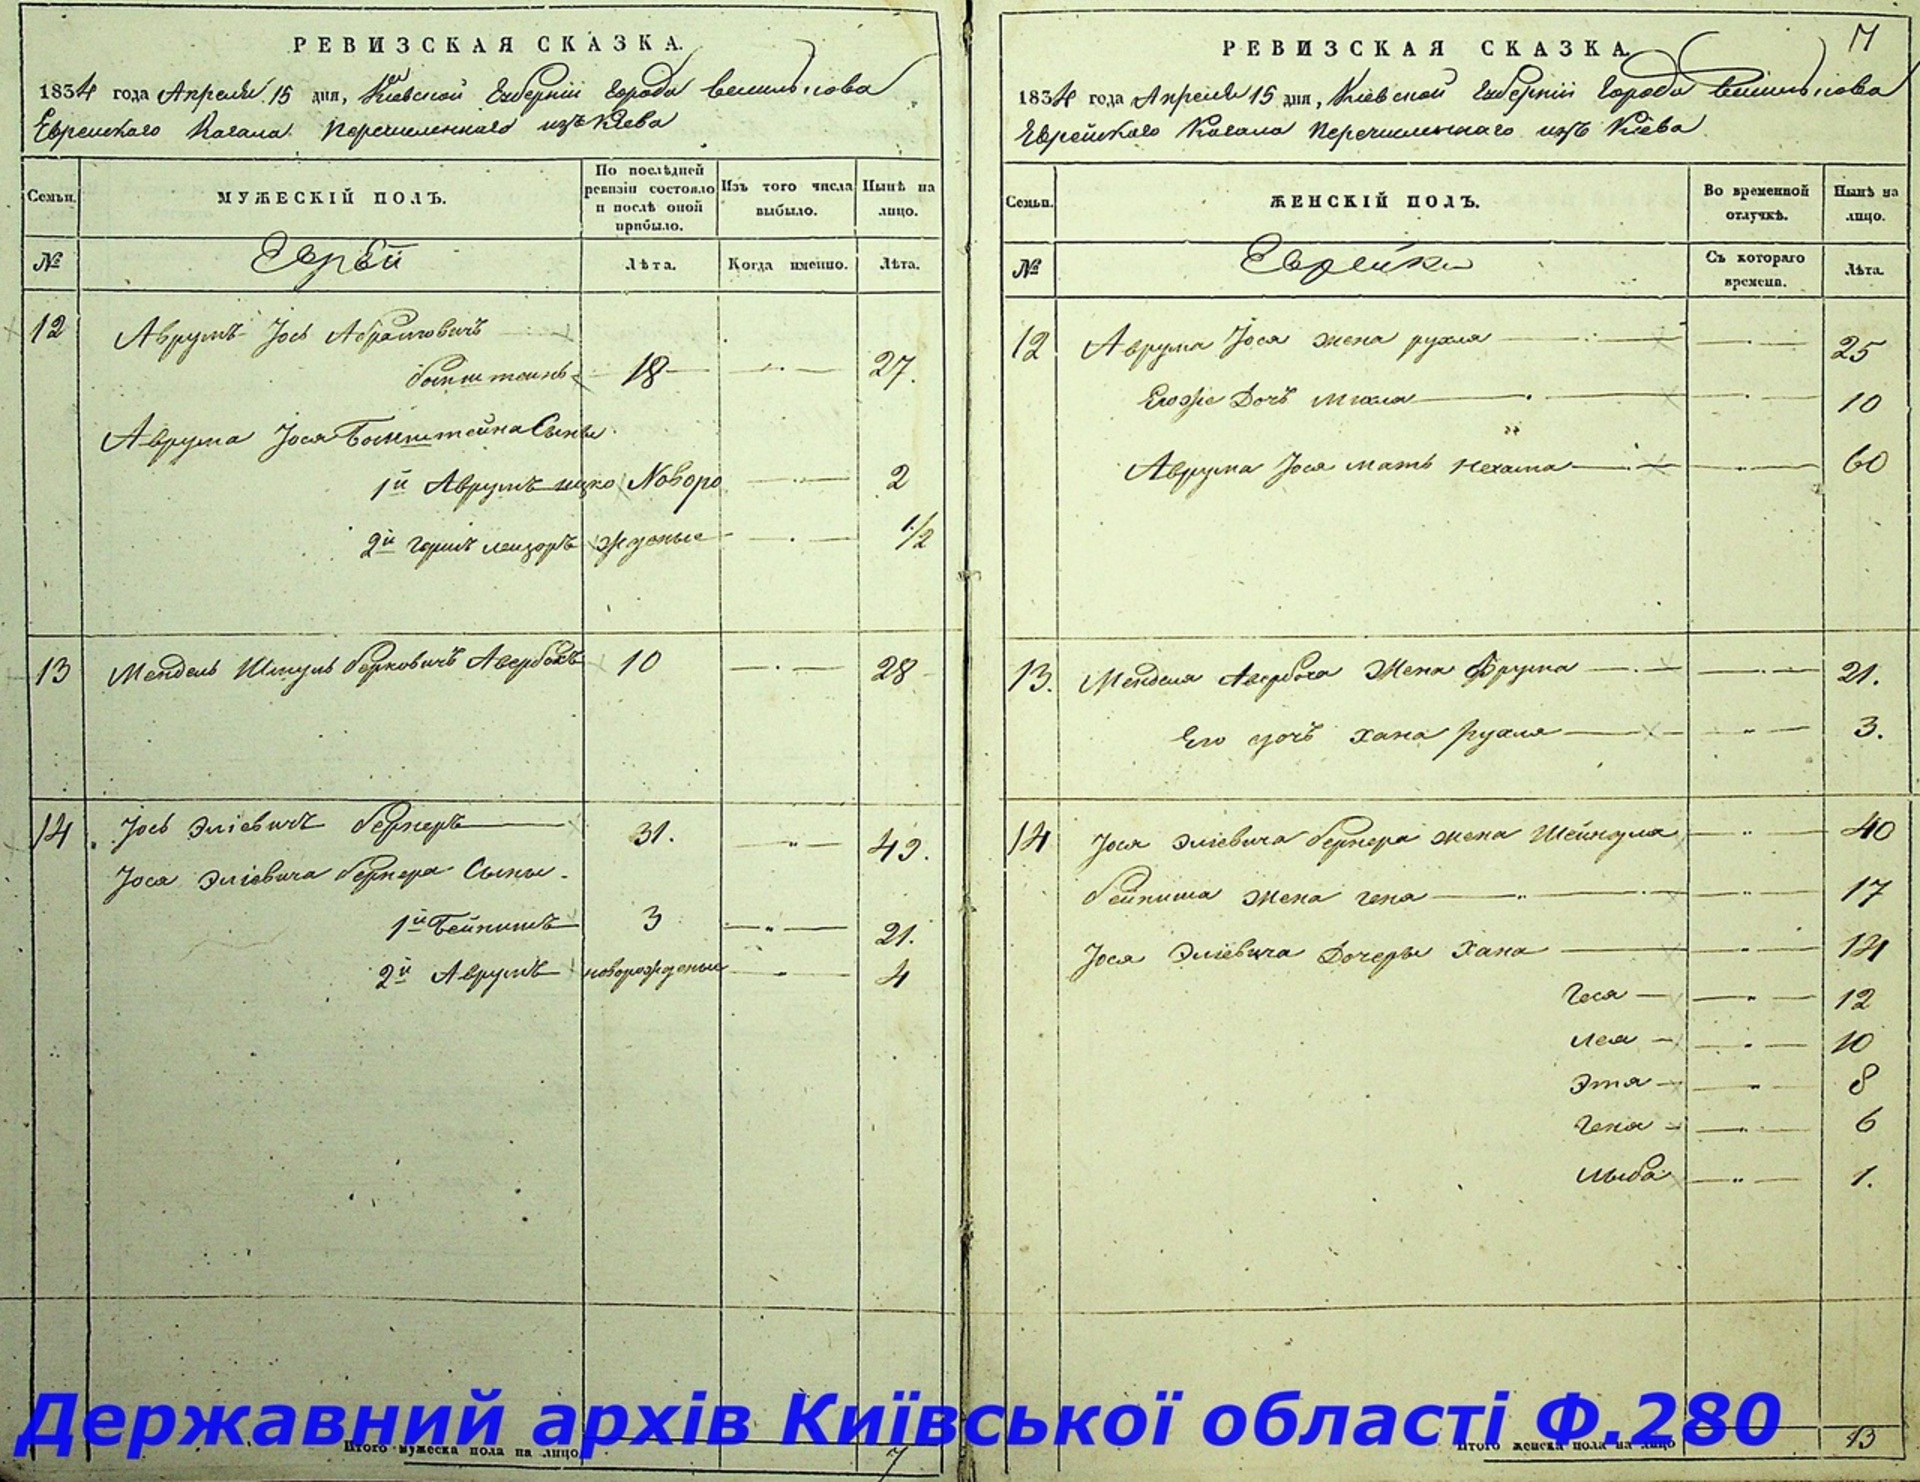 РЕВИЗСКАЯ СКАЗКА.
1834 года Апреля 15 дня, Кіевской Губерніи Города Василькова
Еврейского Кагала Перечисленного изъ Кіева
Семьи.
МУЖЕСКІЙ ПОЛЪ.
По послѣдней ревизіи состояло и послѣ оной прибыло.
Изъ того числа выбыло.
Нынѣ на лицо.
№
Еврѣй
Лѣта.
Когда именно.
Лѣта.
12 Аврумъ Іось Абрамовичъ
18 27.
Аврума Іося Сыны
1й Аврумъ Ицко Новоро 2
2й Гершъ Лейзоръ жденые 1/2
13 Мендель Шмуль Берковичъ Авербохъ 10 28
14. Іось Эліевичъ Бернеръ 31. 49.
Іося Эліевича Бернера Сыны
1й Бейнишъ 3 21.
2й Аврумъ новорожденые 4
Итого мужеска пола на лицо 7
7
РЕВИЗСКАЯ СКАЗКА
1834 года Апреля 15 дня, Кіевской Губерніи Города Василькова
Еврейского Кагала Перечисленного изъ Кіева
Семьи.
ЖЕНСКІЙ ПОЛЪ.
Во временной отлучкѣ.
Нынѣ на лицо.
№
Еврейки
Съ котораго времени.
Лѣта.
12 Аврума Іося жена Рухля 25
Егоже Дочь Михля 10
Аврума Іося мать Нехама 60
13. Менделя Авербоха Жена Фрума 21.
Его дочь Хана Рухля 3.
14 Іося Эліевича Бернера жена Шейндля 40
Бейниша Жена Гена 17
Іося Эліевича Дочеры Хана 14
Геся 12
Лея 10
Этя 8
Геня 6
Лыба 1.
Итого женска пола на лицо 13
Державний архів Київської області Ф.280